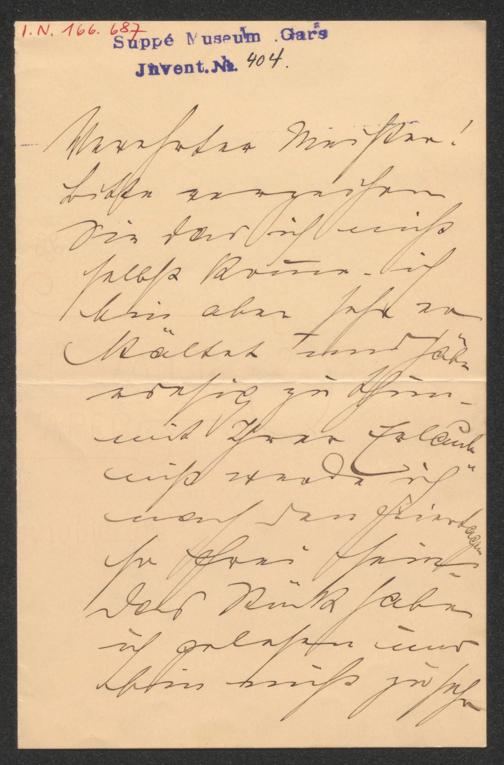 I.N. 166.687
Suppé Museum Gars
Invent. № 404.
Verehrter Meister!
bitte verzeihen
Sie das ich nicht
selbst kome - ich
bin aber sehr er
kältet und habe
zu thun -
mit Ihrer Erlaub
niß werde ich
nach den Feiertagen
so frei sein -
Das Stück habe
ich gelesen und
bin nicht zu sehr